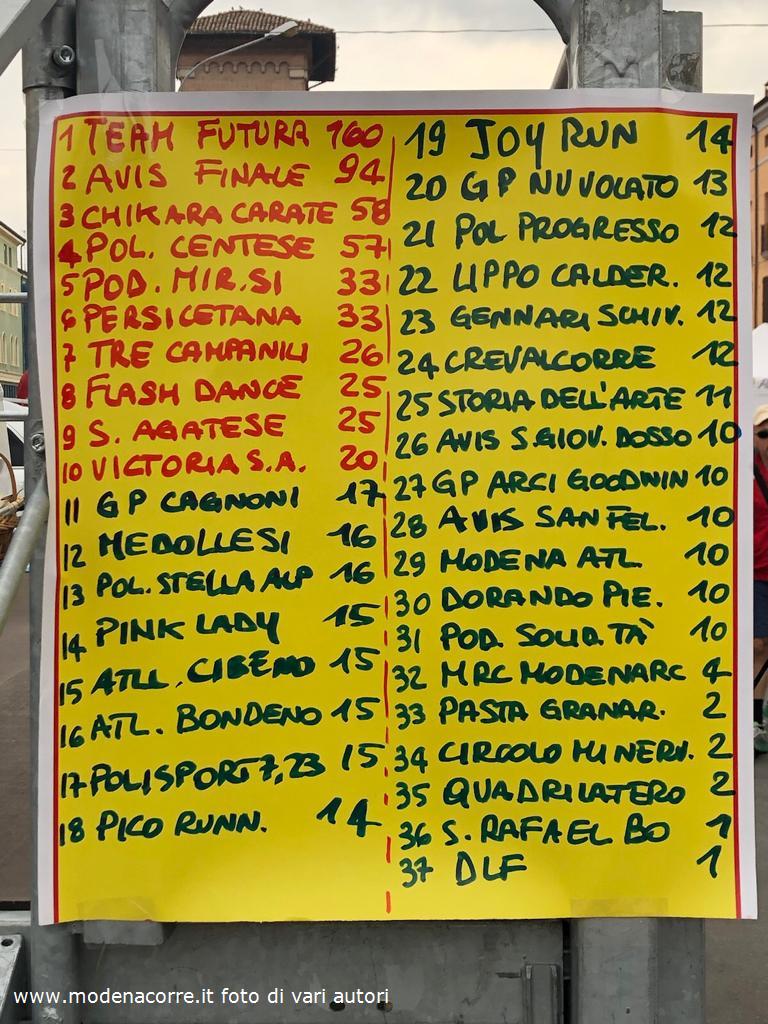 1 TEAM FUTURA 160
2 AVIS FINALE 94
3 CHIKARA CARATE 58
4 POL. CENTESE 57
5 POD. MIR.SI 33
6 PERSICETANA 33
7 TRE CAMPANILI 26
8 FLASH DANCE 25
9 S. AGATESE 25
10 VICTORIA S.A. 20
11 GP CAGNONI 17
12 MEDOLLESI 16
13 POL. STELLA ALP 16
14 PINK LADY 15
15 ATLL. CIBENO 15
16 ATL. BONDENO 15
17 POLISPORT 7,23 15
18 PICO RUNN. 14
19 JOY RUN 14
20 GP NUVOLATO 13
21 POL PROGRESSO 12
22 LIPPO CALDER. 12
23 GENNARI SCHIV. 12
24 CREVALCORRE 12
25 STORIA DELL'ARTE 11
26 AVIS S.GIOV. DOSSO 10
27 GP ARCI GOODWIN 10
28 AVIS SAN FEL. 10
29 MODENA ATL. 10
30 DORANDO PIE. 10
31 POD. SOLID.TÀ 10
32 MRC MODENARC 4
33 PASTA GRANAR. 2
34 CIRCOLO MINERV. 2
35 QUADRILATERO 2
36 S. RAFAEL BO 1
37 DLF 1
www.modenacorre.it foto di vari autori